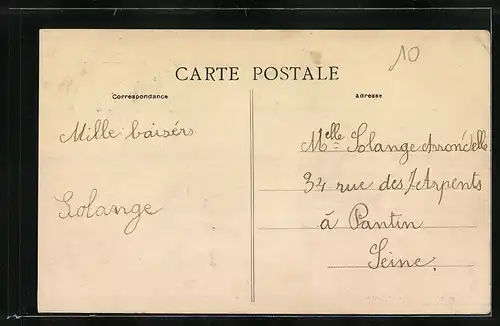 10
CARTE POSTALE
Correspondance
adresse
Mille baisérs
Solange
Melle Solange
34 rue des 7 Arpents
à Pantin
Seine.